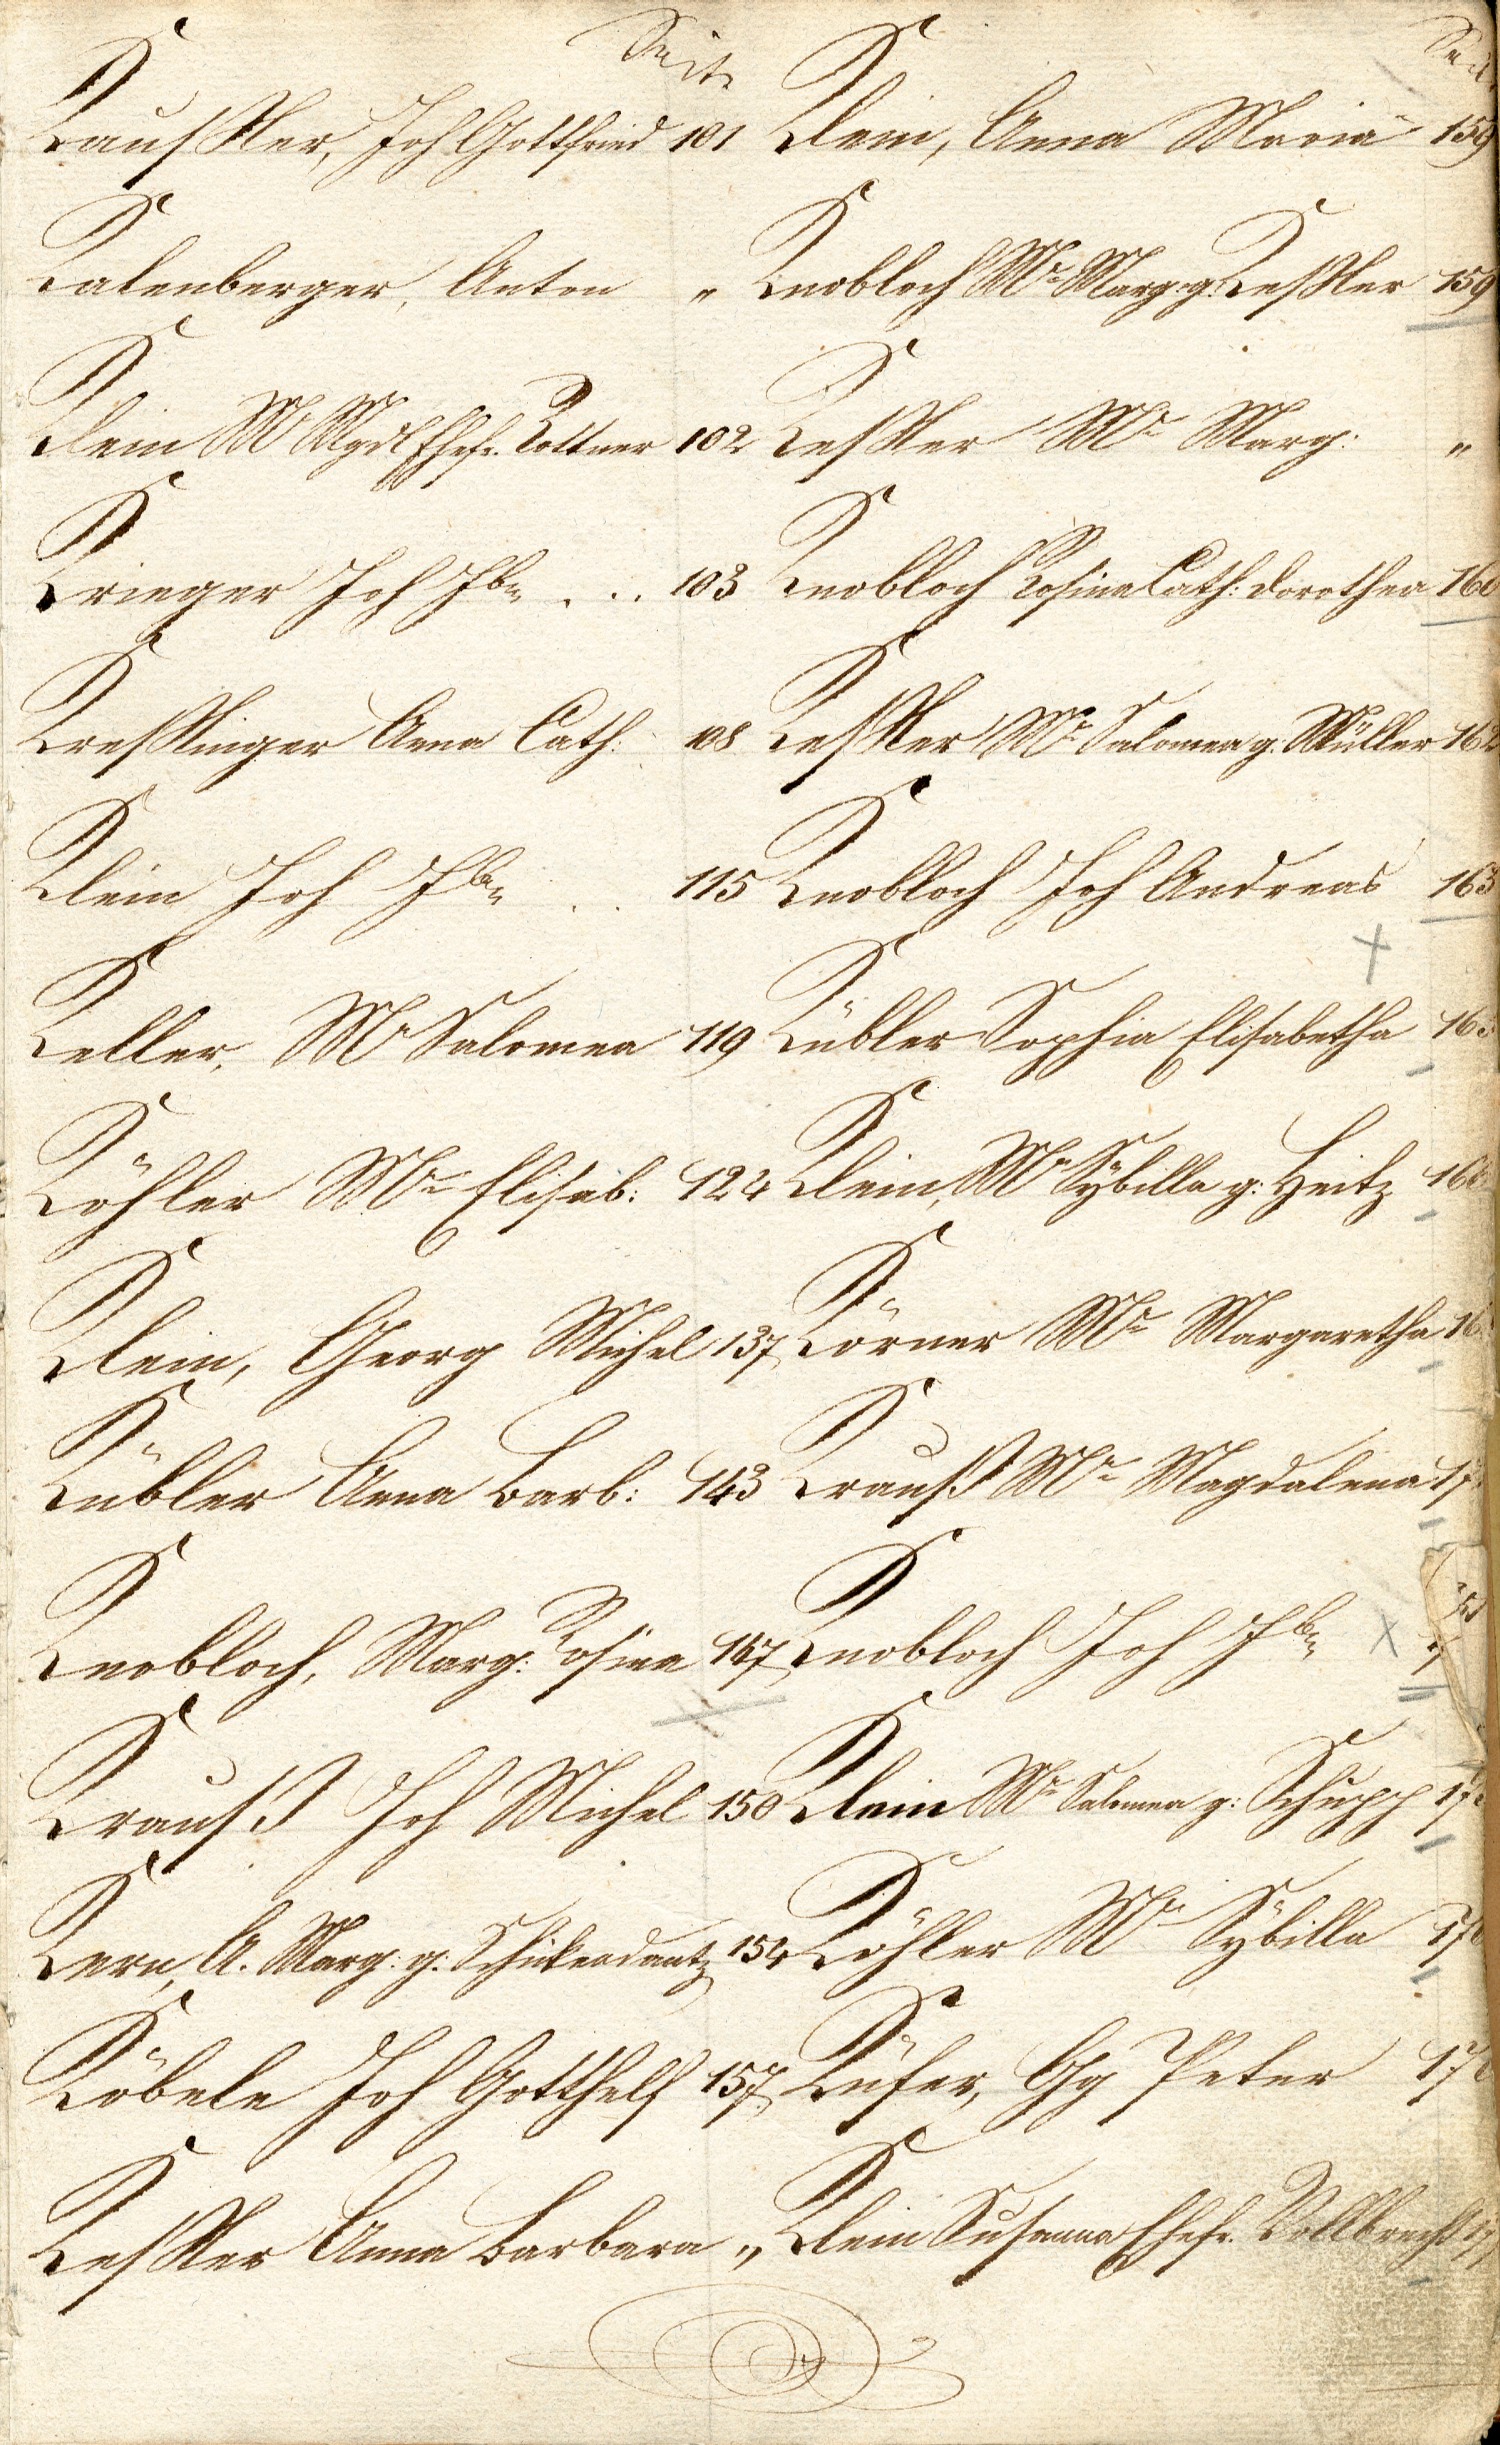 Seite
Kauffler, Joh Gottfried 101
Kalenberger, Anton "
Klein M Mgdl Ehefr. Kottner 102
Krieger Joh Jb . . . 103
Kreßlinger Anna Cath: 108
Klein Joh Jb . . 115
Keller, Mr Salomea 119
Köhler Mr Elisab: 124
Klein, Georg Michel 137
Kübler Anna Barb: 143
Knobloch, Marg: Rosina 147
Krauß Joh Michel 150
Kern, A. Marg: g: Schickendantz 154
Köbele Joh Gotthelf 157
Keßler Anna Barbara "
Klein, Anna Maria 159
Knobloch Mr Marg: g: Keßler 159
Keßler Mr Marg: "
Knobloch Rosina Cath: Dorothea 160
Keßler Mr Salomea g. Müller 162
Knobloch Joh Andreas 163
Kübler Sophia Elisabetha
Klein, Mr Sÿbilla g: Heitz
Körner Mr Margaretha
Krauß Mr Magdalena
Knobloch Joh Jb
Klein Mr Salomea g: Schupp
Köhler Mr Sÿbilla
Küfer, Gg Peter
Klein Susanna Ehefr. Vollbrecht